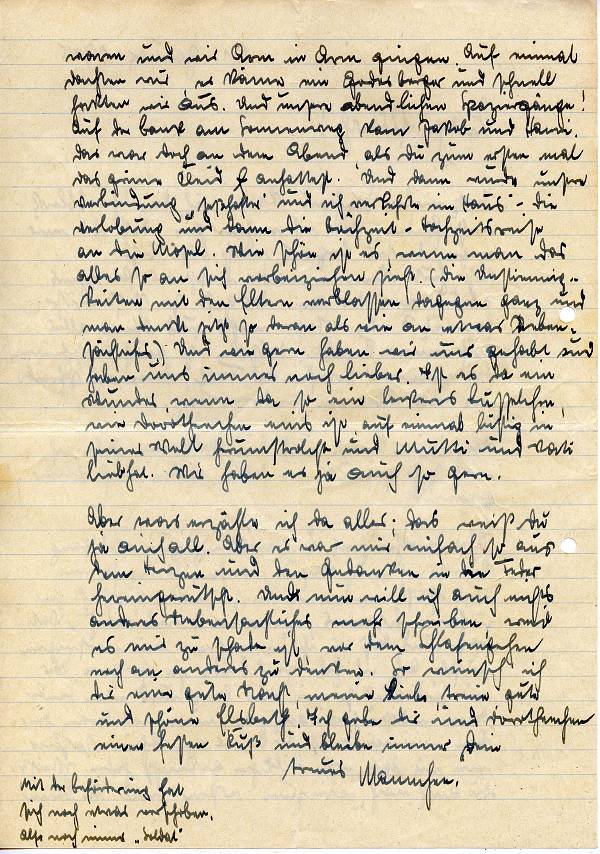 waren und wir Arm in Arm gingen. Auf einmal
dachten wir, es käme ein Godesberger und schnell
hakten wir aus. Und unsere abendlichen Spaziergänge!
Auf der Bank am Sonnenweg kam Jakob und
das war doch an dem Abend als du zum ersten mal
das grüne Kleid anhattest. Und dann wurde unsere
Verbindung und ich verkehrte im Haus" - die
Verlobung und dann die Hochzeit - Hochzeitsreise
an die Mosel. Wie schön ist es, wenn man das
alles so an sich vorbeiziehen sieht. (Die Unstimmig-
keiten mit den Eltern verblassen dagegen ganz und
man denkt jetzt so daran als wie an etwas Neben-
sächliches.) Und wie gern haben wir uns gehabt und
haben uns immer noch lieber. Ist es da ein
Wunder, wenn da so ein
wie Dorotheechen eins ist auf einmal lustig in
seiner Welt herumstrolcht und Mutti und Vati
liebhat. Wir haben es ja auch so gern.
Aber was erzähle ich da alles; das weißt Du
ja auch all. Aber es war mir einfach so aus
dem Herzen und den Gedanken in die Feder
hereingerutscht. Und nun will ich auch nichts
anderes Nebensächliches mehr schreiben, weil
es mir zu schade ist, vor dem Schlafengehen
noch an anderes zu denken. So wünsch ich
Dir eine gute Nacht, meine liebe treue gute
und schöne Elsbeth. Ich gebe Dir und Dorotheechen
einen festen Kuß und bleibe immer Dein
treues Mannchen.
Mit der Beförderung hat
sich noch etwas verschoben.
Also noch immer „Soldat"